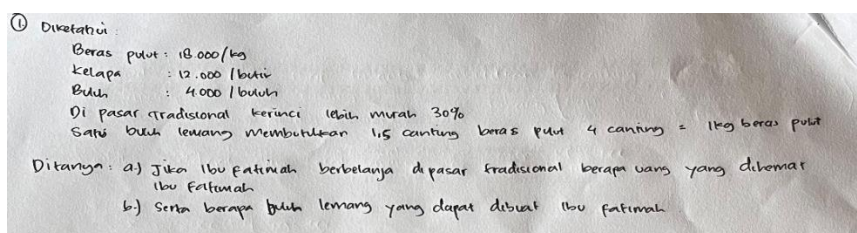 ① Diketahui :
Beras pulut : 18.000/kg
Kelapa : 12.000 /butir
Buluh : 4.000 / buluh
Di pasar Tradisional kerinci lebih murah 30%
Satu buluh lemang membutuhkan 1,5 canting beras pulut 4 canting = 1kg beras pulut
Ditanya : a.) Jika Ibu Fatimah berbelanja di pasar tradisional berapa uang yang dihemat
Ibu Fatimah
b.) Serta berapa buluh lemang yang dapat dibuat Ibu Fatimah